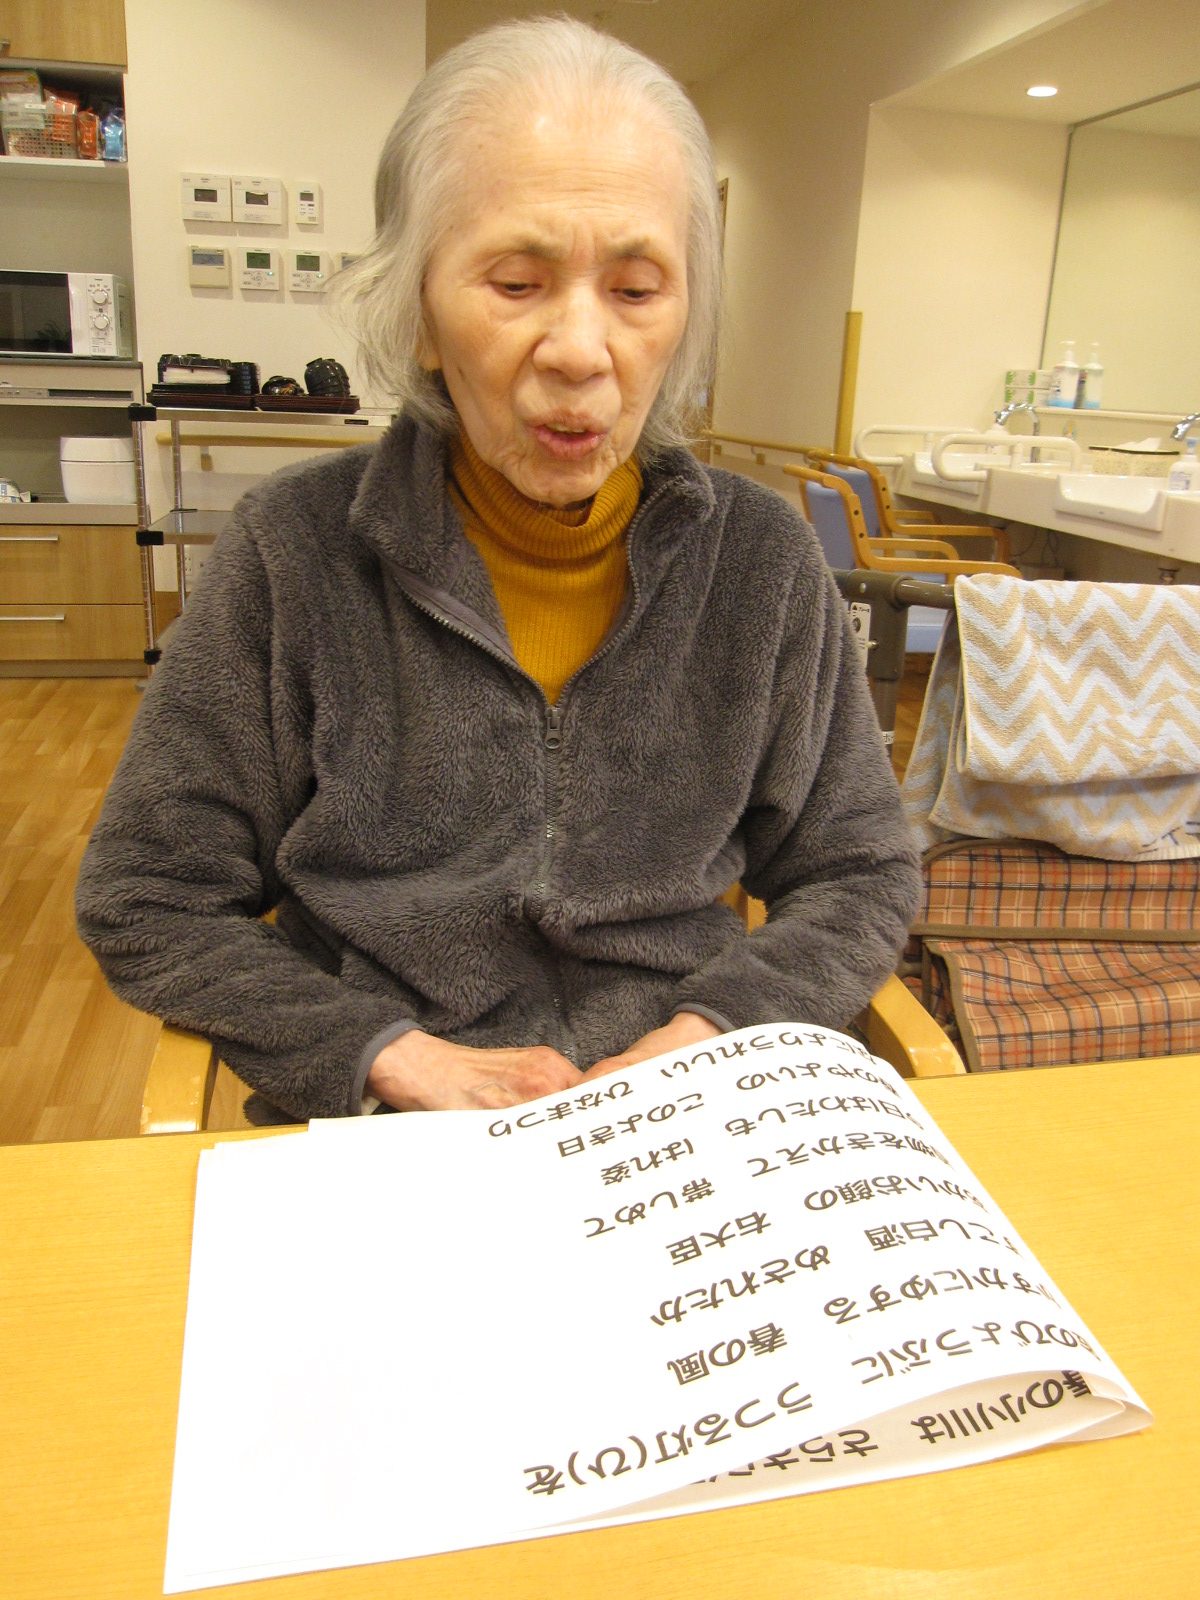 春の小川は　さらさら
のびょうぶに　うつる灯(ひ)を
すかにゆする　春の風
こし白酒　めされたか
かいお顔の　右大臣
物をきかえて　帯しめて
日はわたしも　はれ姿
のやよいの　このよき日
なによりうれしい　ひなまつり